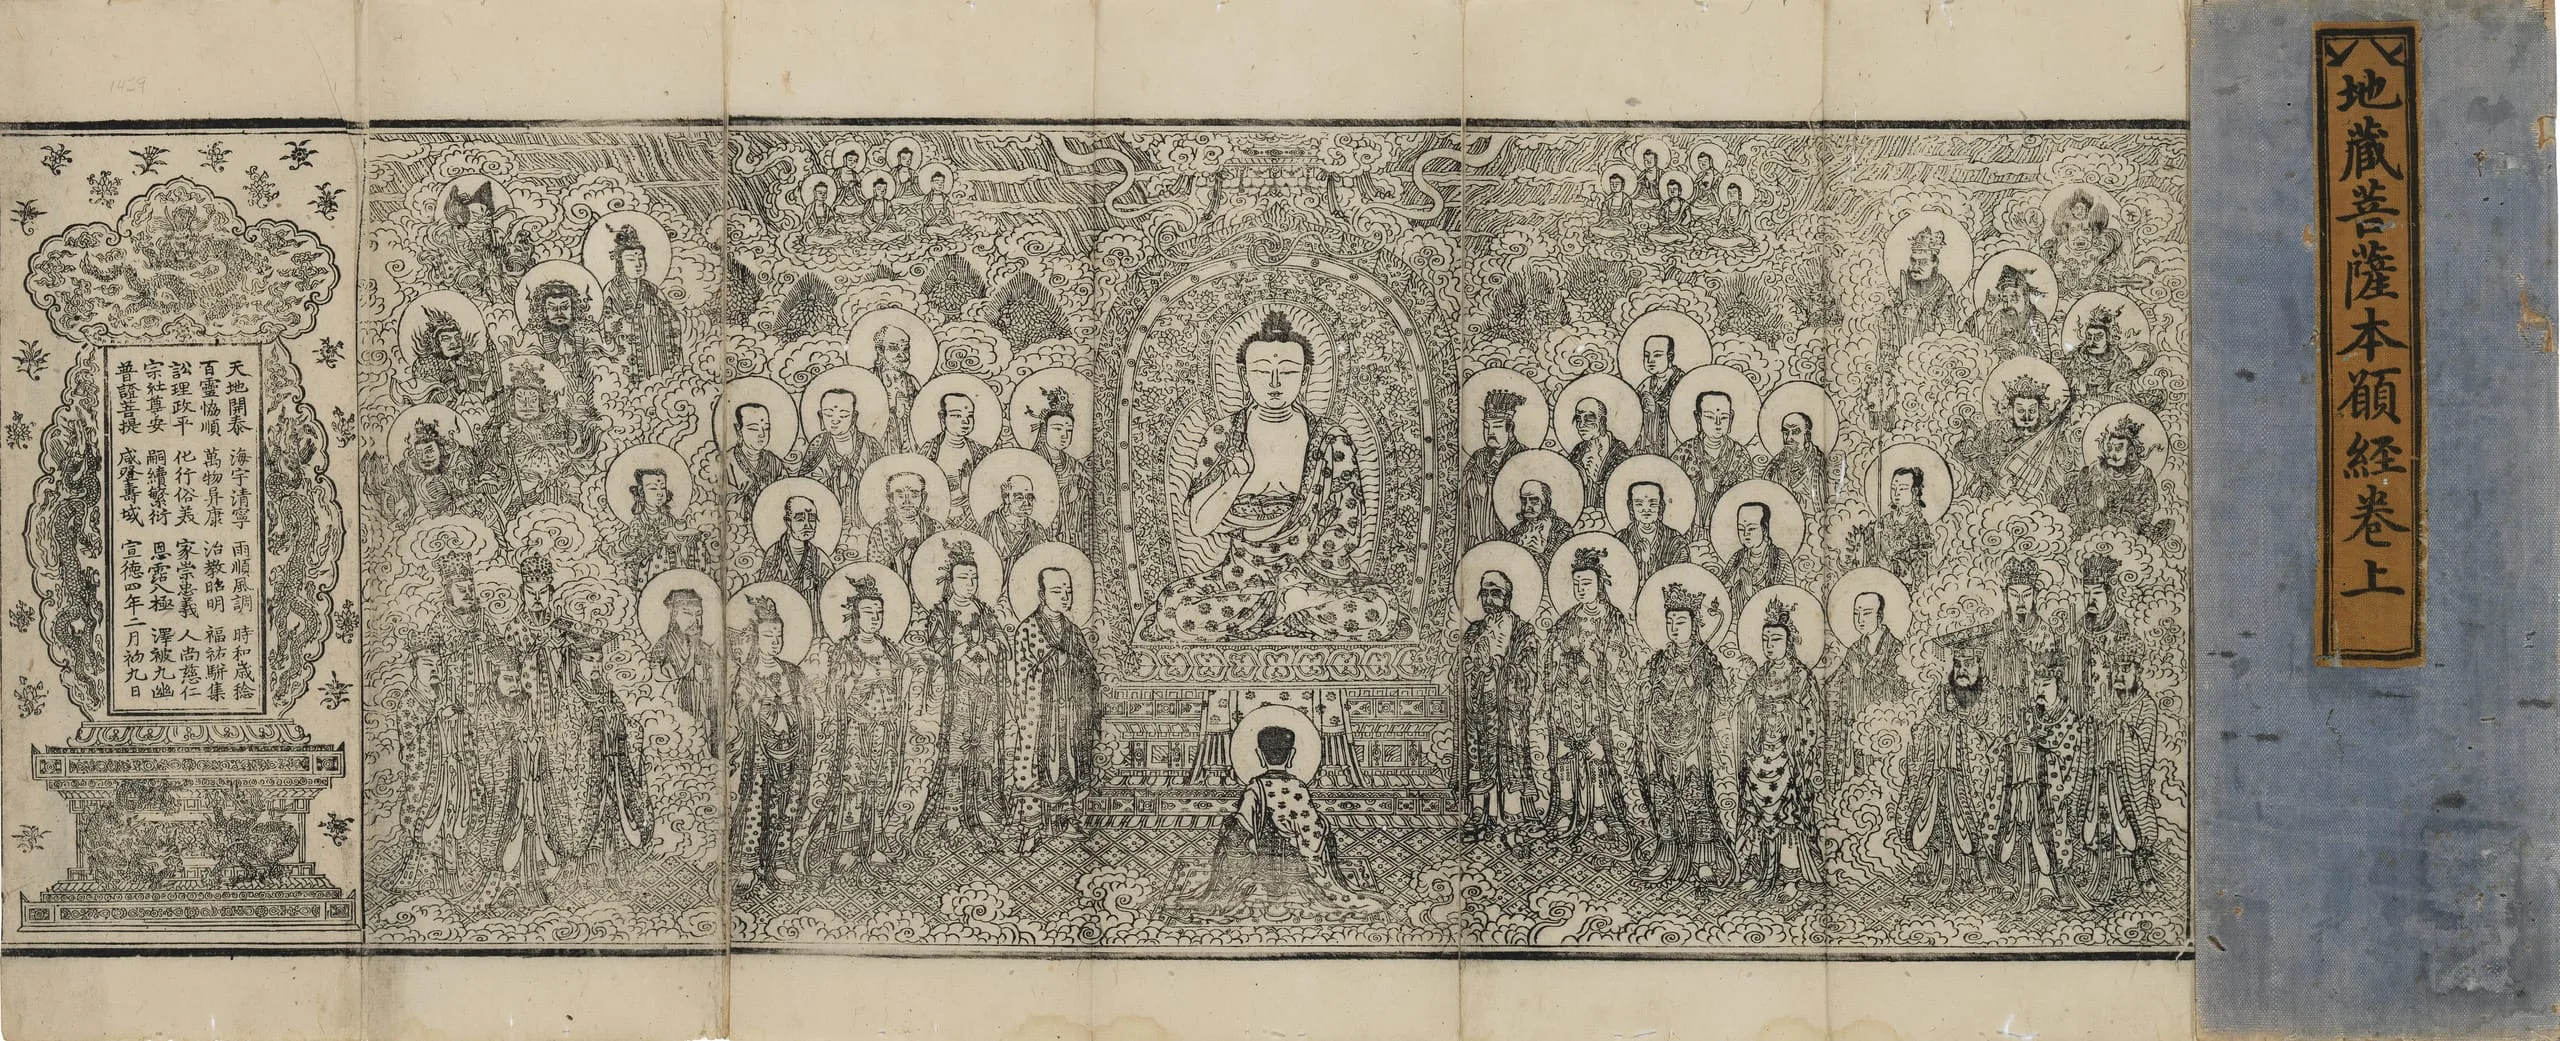 地藏菩薩本願經卷上
天地開泰 海宇清寧 雨順風調 時和歲稔
百靈協順 萬物阜康 治教昭明 福祐駢集
訟理政平 化行俗美 家崇忠義 人尚慈仁
宗社尊安 嗣續繁衍 恩霑八極 澤被九幽
普證菩提 咸登壽域 宣德四年二月初九日
1429